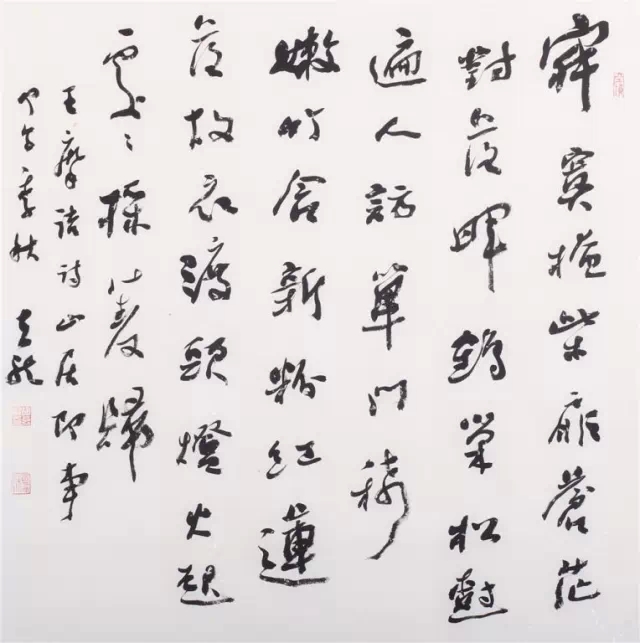 寂寞掩柴扉蒼茫
對落暉鶴巢松樹
遍人訪蓽門稀
嫩竹含新粉紅蓮
落故衣渡頭燈火起
處々採菱歸
王摩詰詩山居即事
甲午季秋